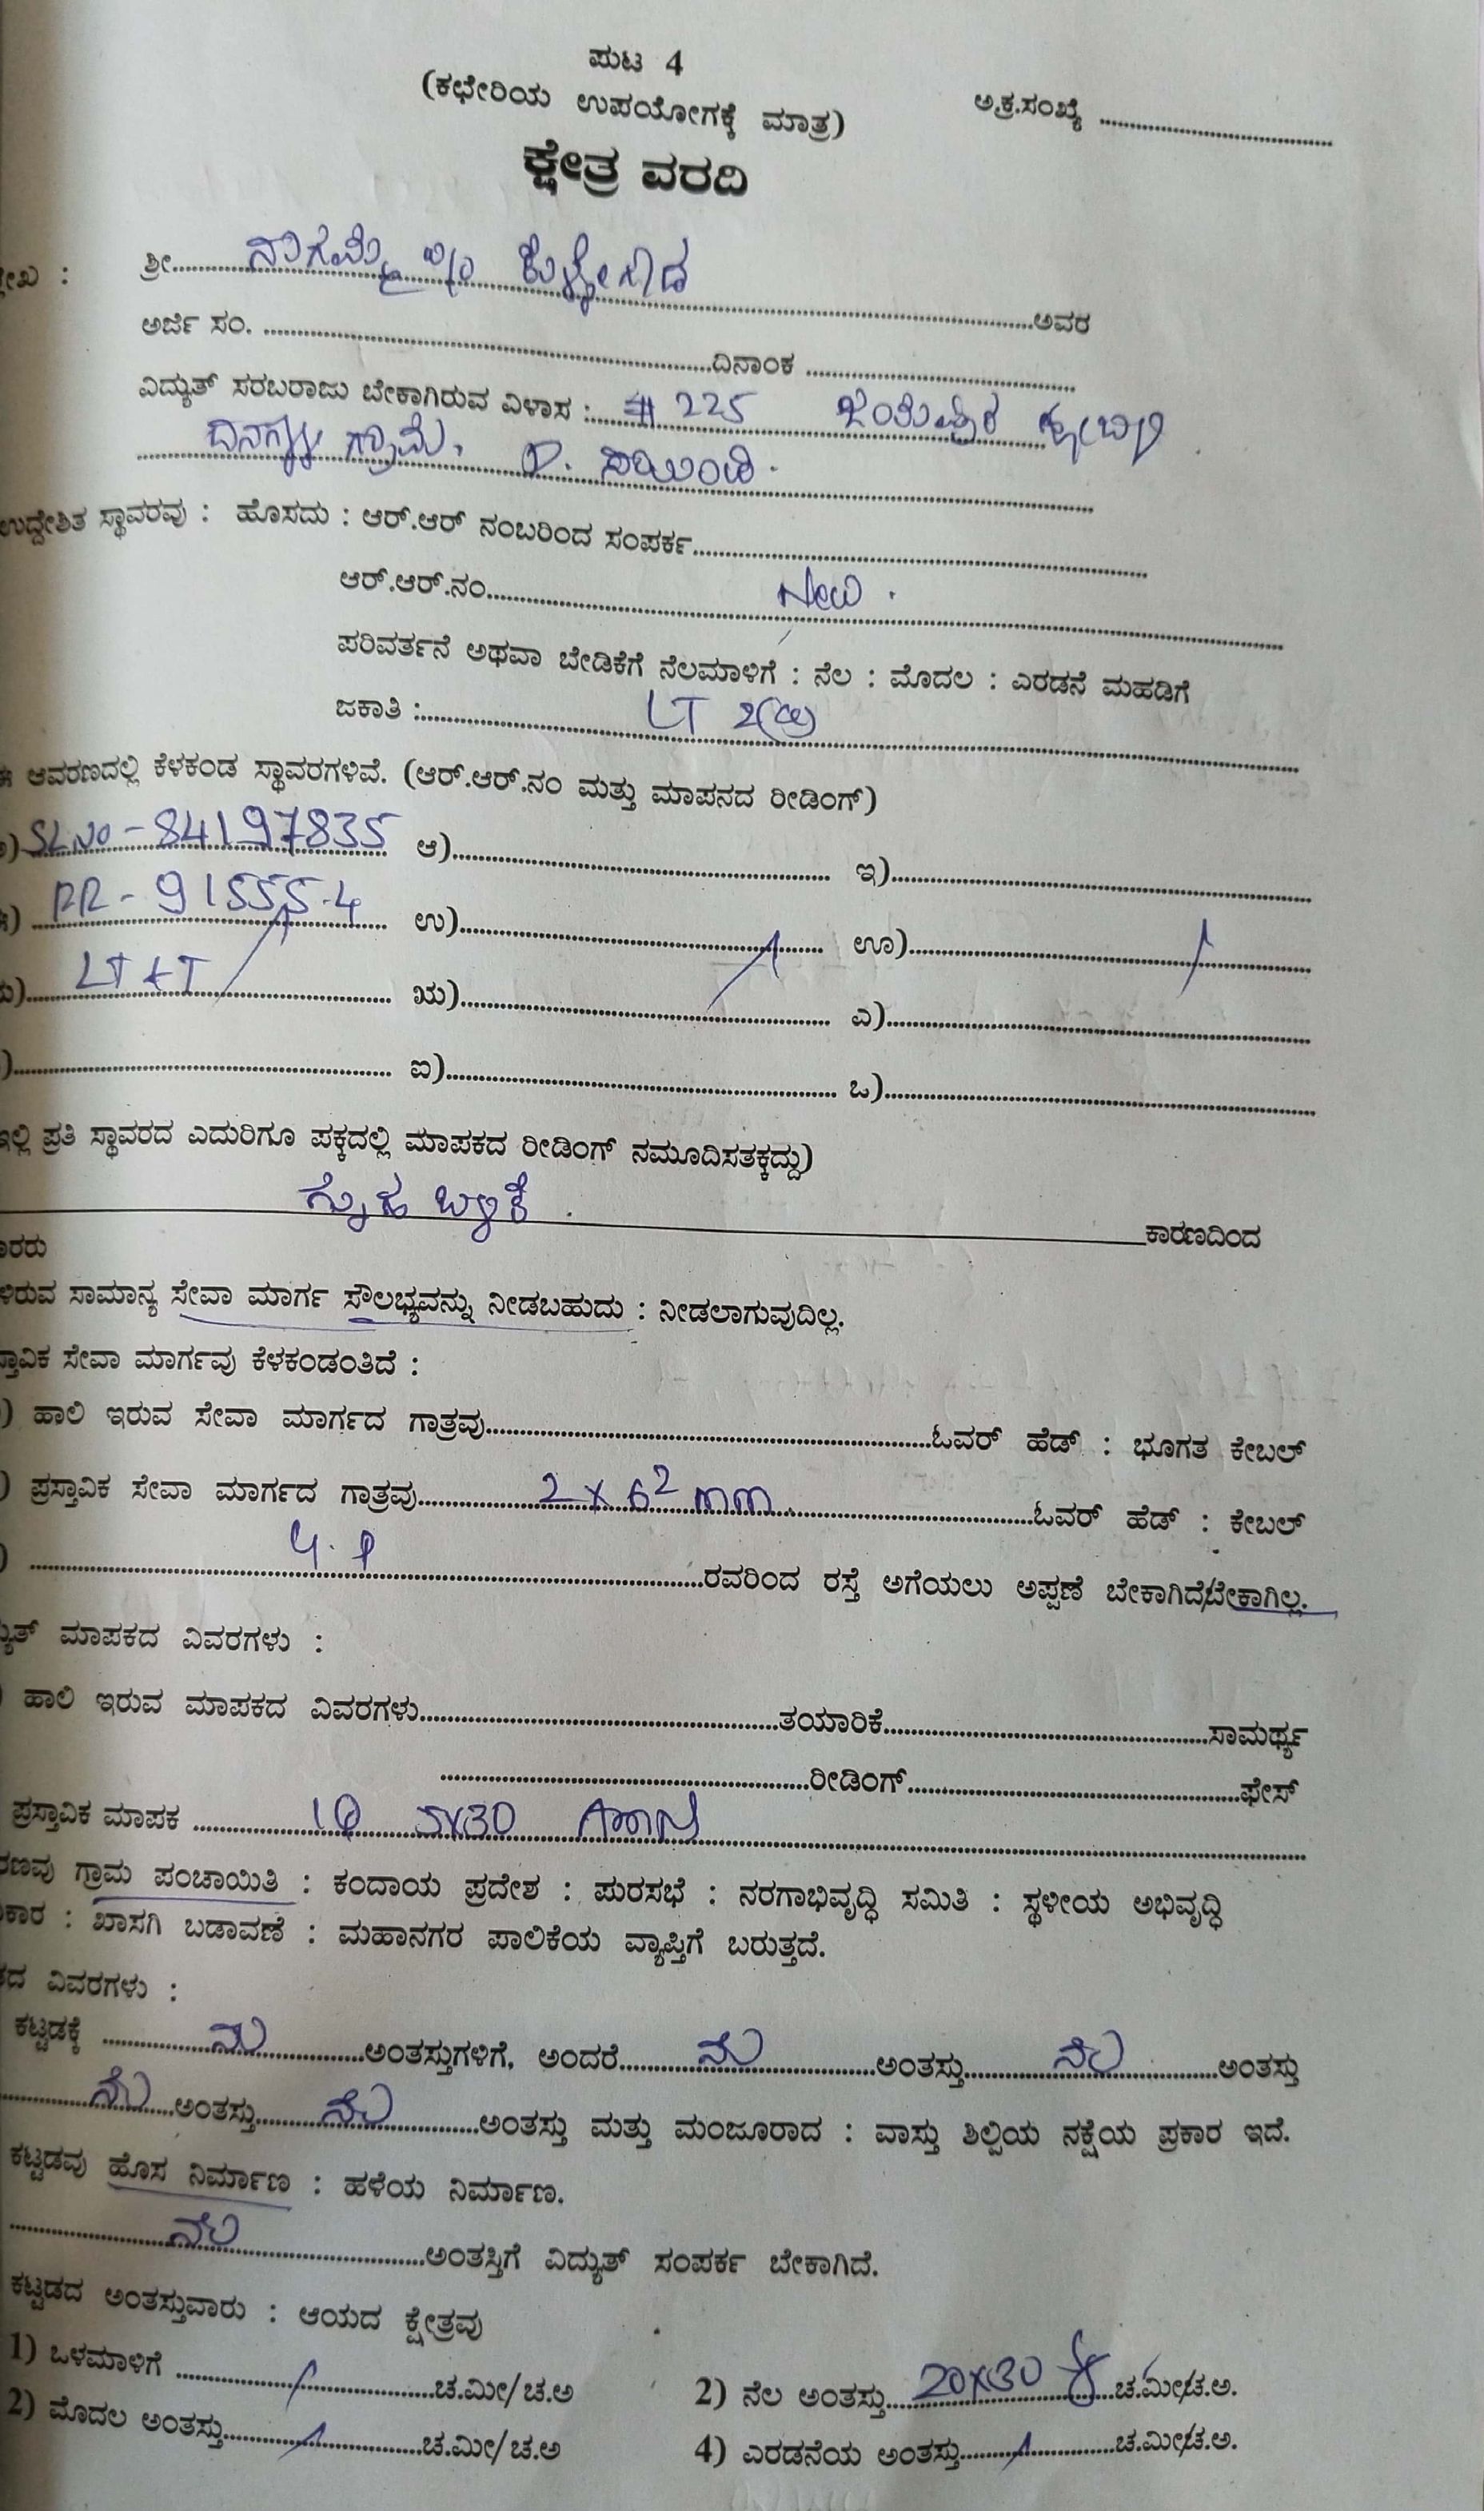 ಪುಟ 4
(ಕಛೇರಿಯ ಉಪಯೋಗಕ್ಕೆ ಮಾತ್ರ)
ಅ.ಕ್ರ.ಸಂಖ್ಯೆ ........................
ಕ್ಷೇತ್ರ ವರದಿ
ಶ್ರೀ........ನಾಗಮ್ಮ........ಅವರ
ಅರ್ಜಿ ಸಂ. ........................ದಿನಾಂಕ ........................
ವಿದ್ಯುತ್ ಸರಬರಾಜು ಬೇಕಾಗಿರುವ ವಿಳಾಸ :...... # 225
ಗ್ರಾಮ,
ಉದ್ದೇಶಿತ ಸ್ಥಾವರವು : ಹೊಸದು : ಆರ್.ಆರ್ ನಂಬರಿಂದ ಸಂಪರ್ಕ........................
ಆರ್.ಆರ್.ನಂ............New.
ಪರಿವರ್ತನೆ ಅಥವಾ ಬೇಡಿಕೆಗೆ ನೆಲಮಾಳಿಗೆ : ನೆಲ : ಮೊದಲ : ಎರಡನೆ ಮಹಡಿಗೆ
ಜಕಾತಿ :............LT 2(a)
ಆವರಣದಲ್ಲಿ ಕೆಳಕಂಡ ಸ್ಥಾವರಗಳಿವೆ. (ಆರ್.ಆರ್.ನಂ ಮತ್ತು ಮಾಪನದ ರೀಡಿಂಗ್)
SL.No - 84197835 ಆ)........................ ಇ)........................
RR - 91555.4 ಉ)........................ ಊ)........................
LT &T ಋ)........................ ಎ)........................
........................ ಐ)........................ ಒ)........................
ಇಲ್ಲಿ ಪ್ರತಿ ಸ್ಥಾವರದ ಎದುರಿಗೂ ಪಕ್ಕದಲ್ಲಿ ಮಾಪಕದ ರೀಡಿಂಗ್ ನಮೂದಿಸತಕ್ಕದ್ದು)
ಗೃಹ ಬಳಕೆ. ಕಾರಣದಿಂದ
ಸಾಮಾನ್ಯ ಸೇವಾ ಮಾರ್ಗ ಸೌಲಭ್ಯವನ್ನು ನೀಡಬಹುದು : ನೀಡಲಾಗುವುದಿಲ್ಲ.
ಸೇವಾ ಮಾರ್ಗವು ಕೆಳಕಂಡಂತಿದೆ :
) ಹಾಲಿ ಇರುವ ಸೇವಾ ಮಾರ್ಗದ ಗಾತ್ರವು........................ಓವರ್ ಹೆಡ್ : ಭೂಗತ ಕೇಬಲ್
) ಪ್ರಸ್ತಾವಿಕ ಸೇವಾ ಮಾರ್ಗದ ಗಾತ್ರವು............2 x 6² mm............ಓವರ್ ಹೆಡ್ : ಕೇಬಲ್
) ........................ರವರಿಂದ ರಸ್ತೆ ಅಗೆಯಲು ಅಪ್ಪಣೆ ಬೇಕಾಗಿದೆ/ಬೇಕಾಗಿಲ್ಲ.
ಮಾಪಕದ ವಿವರಗಳು :
ಹಾಲಿ ಇರುವ ಮಾಪಕದ ವಿವರಗಳು........................ತಯಾರಿಕೆ........................ಸಾಮರ್ಥ್ಯ
........................ರೀಡಿಂಗ್........................ಫೇಸ್
ಪ್ರಸ್ತಾವಿಕ ಮಾಪಕ ............1Φ 5x30 Amp
ಗ್ರಾಮ ಪಂಚಾಯಿತಿ : ಕಂದಾಯ ಪ್ರದೇಶ : ಪುರಸಭೆ : ನರಗಾಭಿವೃದ್ಧಿ ಸಮಿತಿ : ಸ್ಥಳೀಯ ಅಭಿವೃದ್ಧಿ
: ಖಾಸಗಿ ಬಡಾವಣೆ : ಮಹಾನಗರ ಪಾಲಿಕೆಯ ವ್ಯಾಪ್ತಿಗೆ ಬರುತ್ತದೆ.
ವಿವರಗಳು :
ಕಟ್ಟಡಕ್ಕೆ ............ನೆಲ............ಅಂತಸ್ತುಗಳಿಗೆ, ಅಂದರೆ............ನೆಲ............ಅಂತಸ್ತು............ನೆಲ............ಅಂತಸ್ತು
......ನೆಲ......ಅಂತಸ್ತು......ನೆಲ............ಅಂತಸ್ತು ಮತ್ತು ಮಂಜೂರಾದ : ವಾಸ್ತು ಶಿಲ್ಪಿಯ ನಕ್ಷೆಯ ಪ್ರಕಾರ ಇದೆ.
ಕಟ್ಟಡವು ಹೊಸ ನಿರ್ಮಾಣ : ಹಳೆಯ ನಿರ್ಮಾಣ.
............ನೆಲ............ಅಂತಸ್ತಿಗೆ ವಿದ್ಯುತ್ ಸಂಪರ್ಕ ಬೇಕಾಗಿದೆ.
ಕಟ್ಟಡದ ಅಂತಸ್ತುವಾರು : ಆಯದ ಕ್ಷೇತ್ರವು
1) ಒಳಮಾಳಿಗೆ ........................ಚ.ಮೀ/ ಚ.ಅ 2) ನೆಲ ಅಂತಸ್ತು......20x30......ಚ.ಮೀ/ಚ.ಅ.
2) ಮೊದಲ ಅಂತಸ್ತು........................ಚ.ಮೀ/ ಚ.ಅ 4) ಎರಡನೆಯ ಅಂತಸ್ತು............ಚ.ಮೀ/ಚ.ಅ.